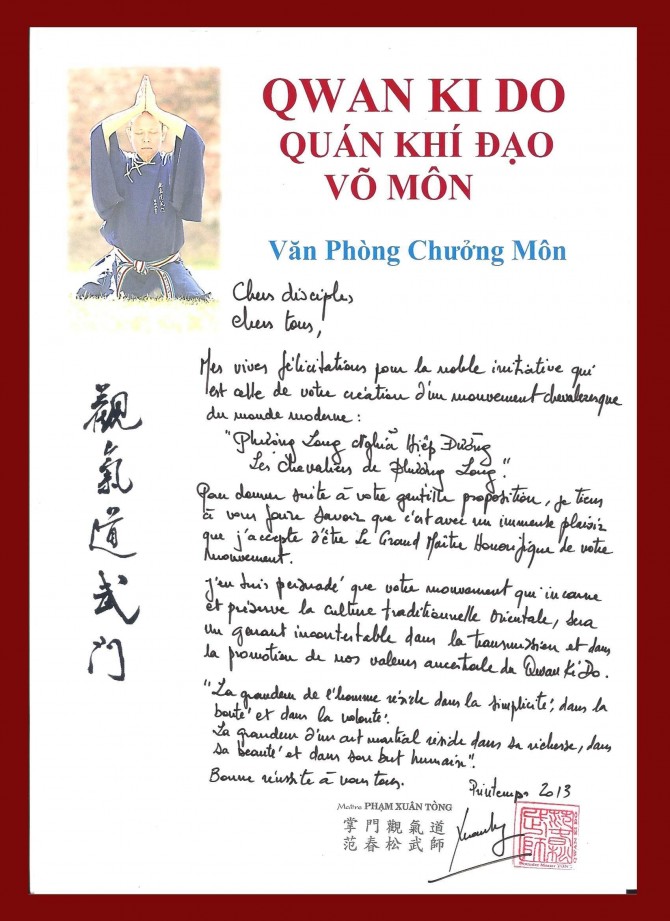 QWAN KI DO
QUÁN KHÍ ĐẠO
VÕ MÔN
Văn Phòng Chưởng Môn
Chers disciples,
Chers tous,
Mes vives félicitations pour la noble initiative qui
est celle de votre création d'un mouvement chevaleresque
du monde moderne :
"Phượng Long Nghĩa Hiệp Đường
Les Chevaliers de Phượng Long".
Pour donner suite à votre gentille proposition, je tiens
à vous faire savoir que c'est avec un immense plaisir
que j'accepte d'être Le Grand Maître Honorifique de votre
mouvement.
J'en suis persuadé que votre mouvement qui incarne
et préserve la culture traditionnelle Orientale, sera
un garant incontestable dans la transmission et dans
la promotion de nos valeurs ancestrale du Qwan Ki Do.
"La grandeur de l'homme réside dans la simplicité, dans la
bonté et dans la volonté.
La grandeur d'un art martial réside dans sa richesse, dans
sa beauté et dans son but humain".
Bonne réussite à vous tous.
Printemps 2013
觀氣道武門
Maître PHẠM XUÂN TÒNG
掌門觀氣道
范春松武師